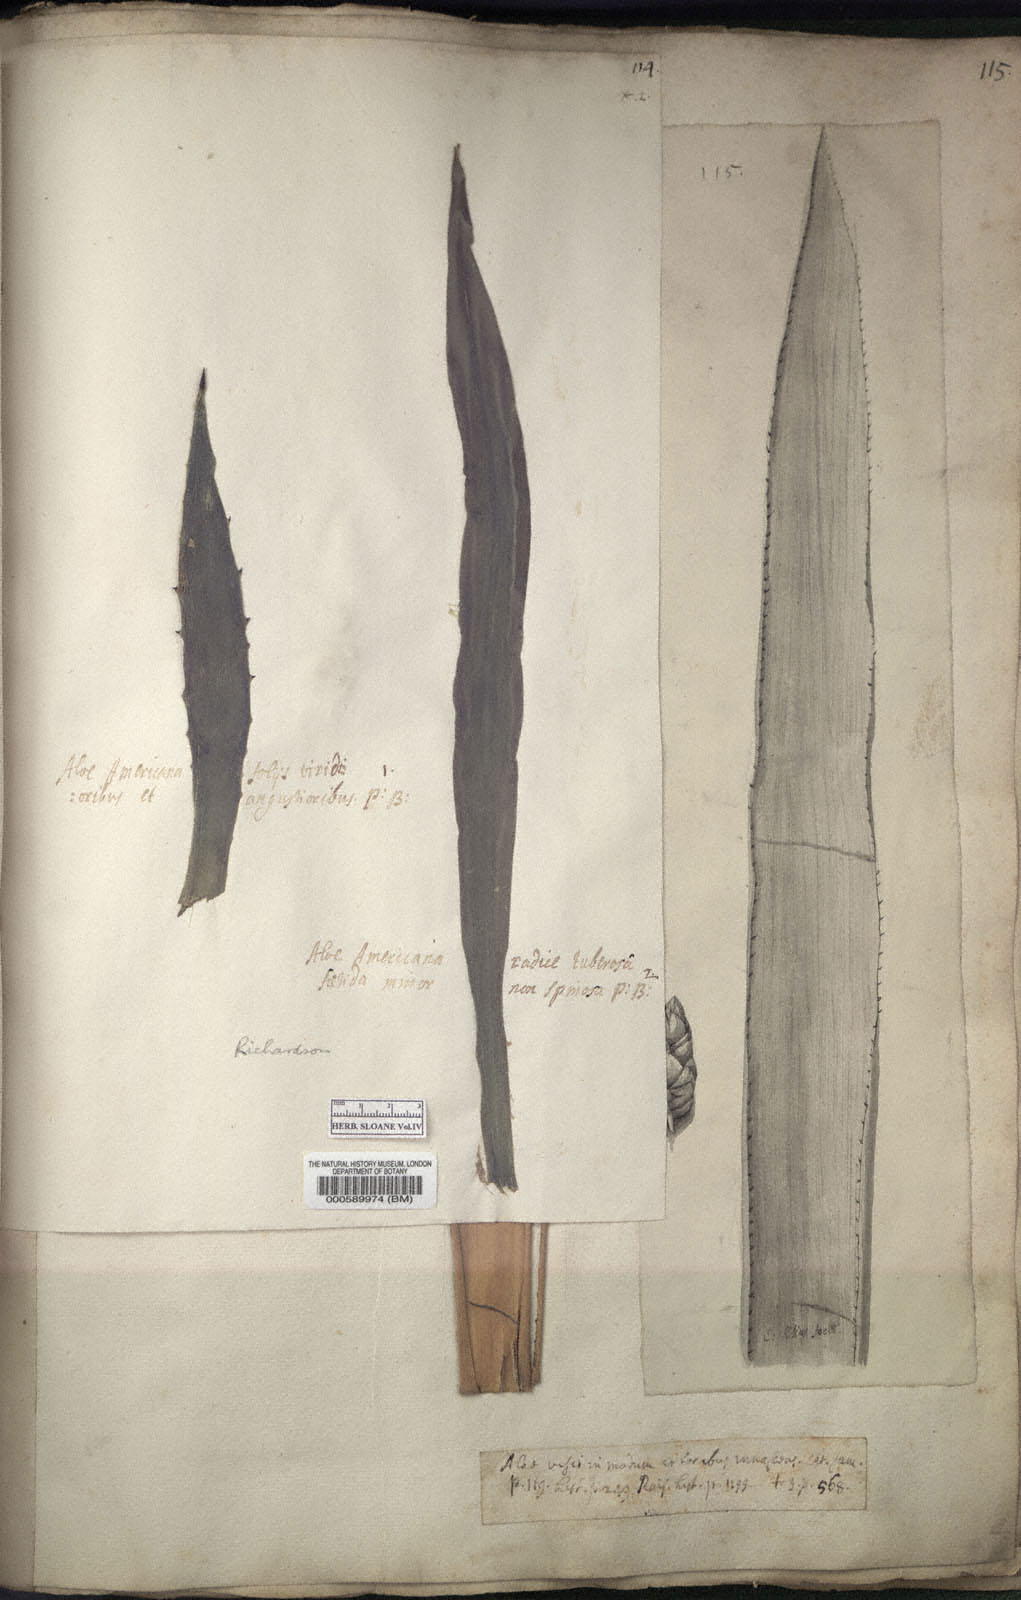 114.
115.
115.
Aloe Americana folijs viridi 1.
:oribus et angustioribus. P: B:
Aloe Americana radice tuberosa
fœtida minor non spinosa P: B: 2
Richardson
mm 1 2 3
HERB. SLOANE Vol.IV
THE NATURAL HISTORY MUSEUM, LONDON
DEPARTMENT OF BOTANY
000589974 (BM)
Aloe visci in modum arboribus innascens. Cat. Jam.
p. 119. hist. p. 249. Raij. hist. p. 1199 t. 3. p. 568.